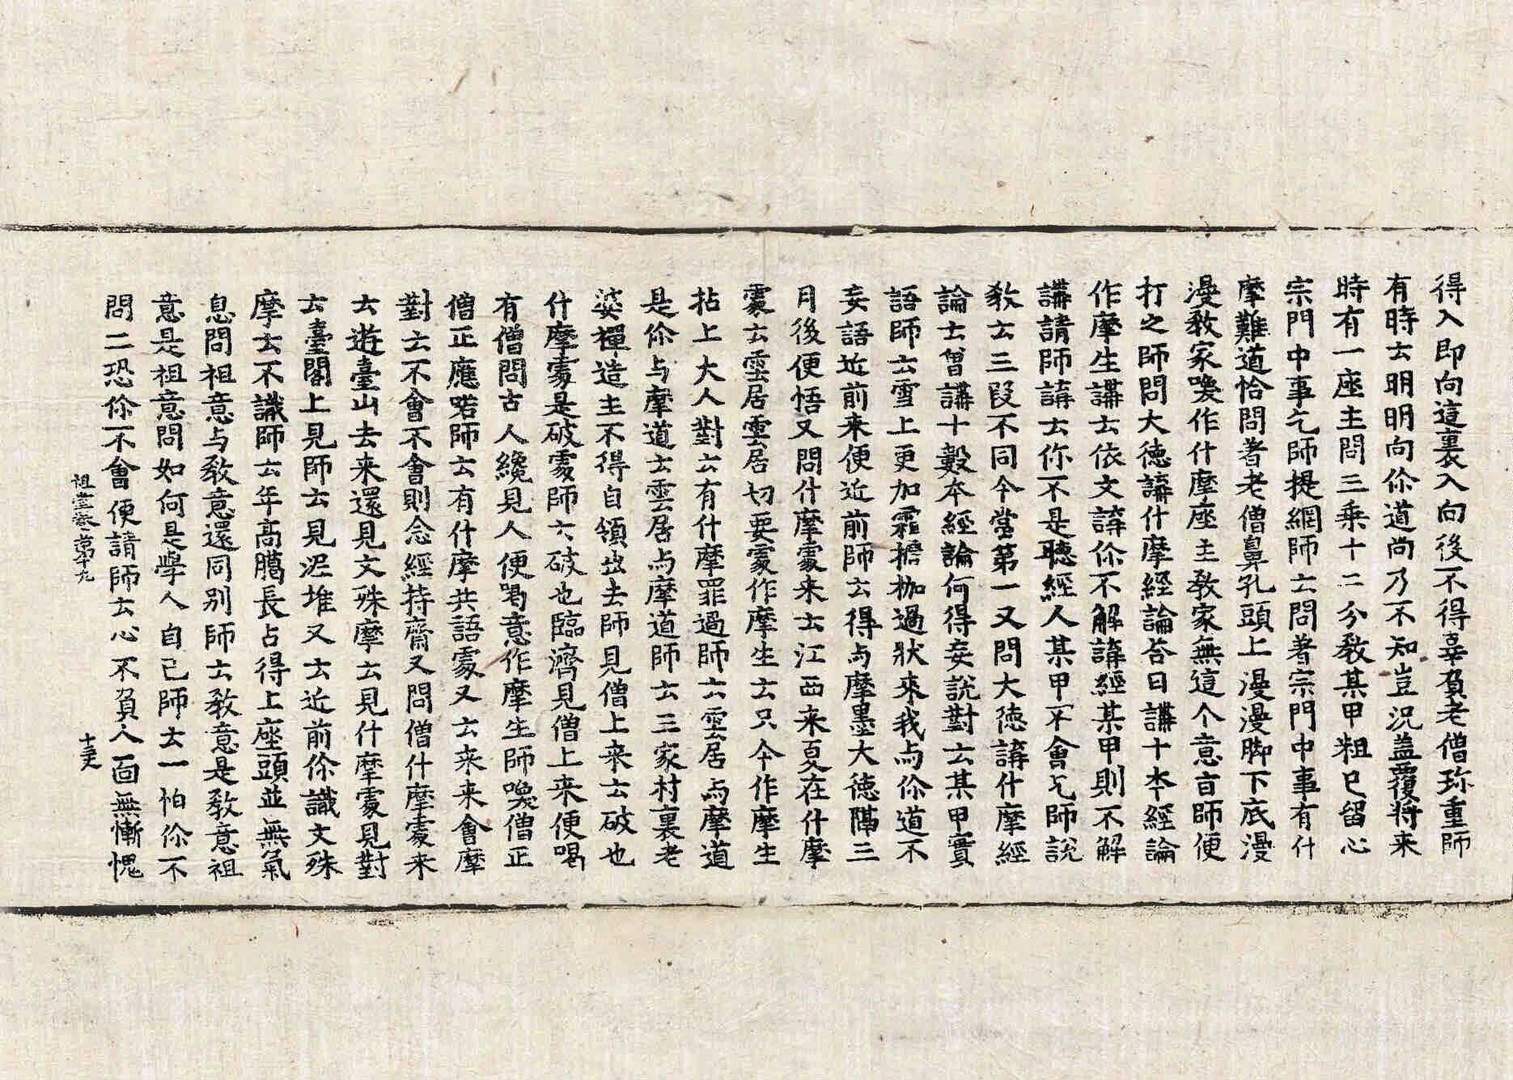 得入即向這裏入向後不得辜負老僧珎重師
有時云明明向你道尚乃不知豈況蓋覆將来
時有一座主問三乘十二分教某甲粗已留心
宗門中事乞師提網師云問著宗門中事有什
摩難道恰問著老僧鼻孔頭上漫漫脚下底漫
漫教家喚作什摩座主教家無這个意旨師便
打之師問大德講什摩經論荅曰講十本經論
作摩生講云依文講你不解講經某甲則不解
講請師講云你不是聽經人某甲不會乞師說
教云三段不同今當第一又問大德講什摩經
論云曾講十數本經論何得妄說對云某甲實
語師云雪上更加霜擔枷過狀來我与你道不
妄語近前来便近前師云得与摩墨大德隔三
月後便悟又問什摩處来云江西来夏在什摩
處云雲居雲居切要處作摩生云只今作摩生
拈上大人對云有什摩罪過師云雲居与摩道
是你与摩道云雲居与摩道師云三家村裏老
婆禪造主不得自領出去師見僧上来云破也
什摩處是破處師云破也臨濟見僧上来便喝
有僧問古人纔見人便喝意作摩生師喚僧正
僧正應喏師云有什摩共語處又云来来會摩
對云不會不會則念經持齋又問僧什摩處来
云遊臺山去来還見文殊摩云見什摩處見對
云臺閣上見師云見泥堆又云近前你識文殊
摩云不識師云年高臈長占得上座頭並無氣
息問祖意与教意還同別師云教意是教意祖
意是祖意問如何是學人自己師云一怕你不
問二恐你不會便請師云心不負人面無慚愧
祖堂卷第十九
十五丈